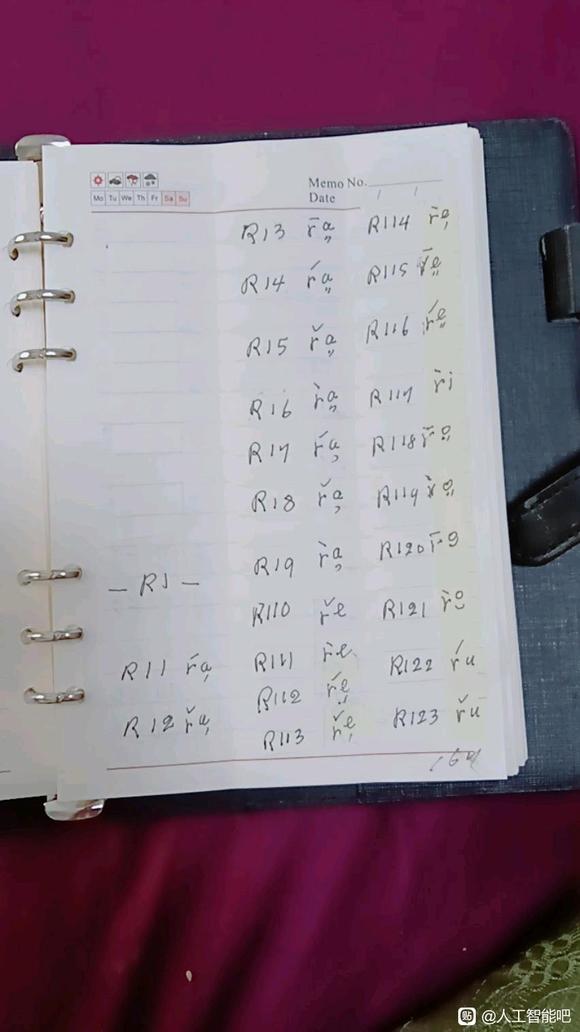 Memo No.
Date
Mo Tu We Th Fr Sa Su
— R1 —
R11 ŕą
R12 řą
R13 r̄a̤
R14 ŕa̤
R15 řa̤
R16 r̀a̤
R17 ŕa̦
R18 řa̦
R19 r̀a̦
R110 ře
R111 r̀e
R112 ŕe̤
R113 ře̩
R114 r̀e̩
R115 r̄e̤
R116 ŕe̤
R117 r̀i
R118 r̄o̤
R119 r̀o̤
R120
R121
R122 ŕu
R123 řu
@人工智能吧